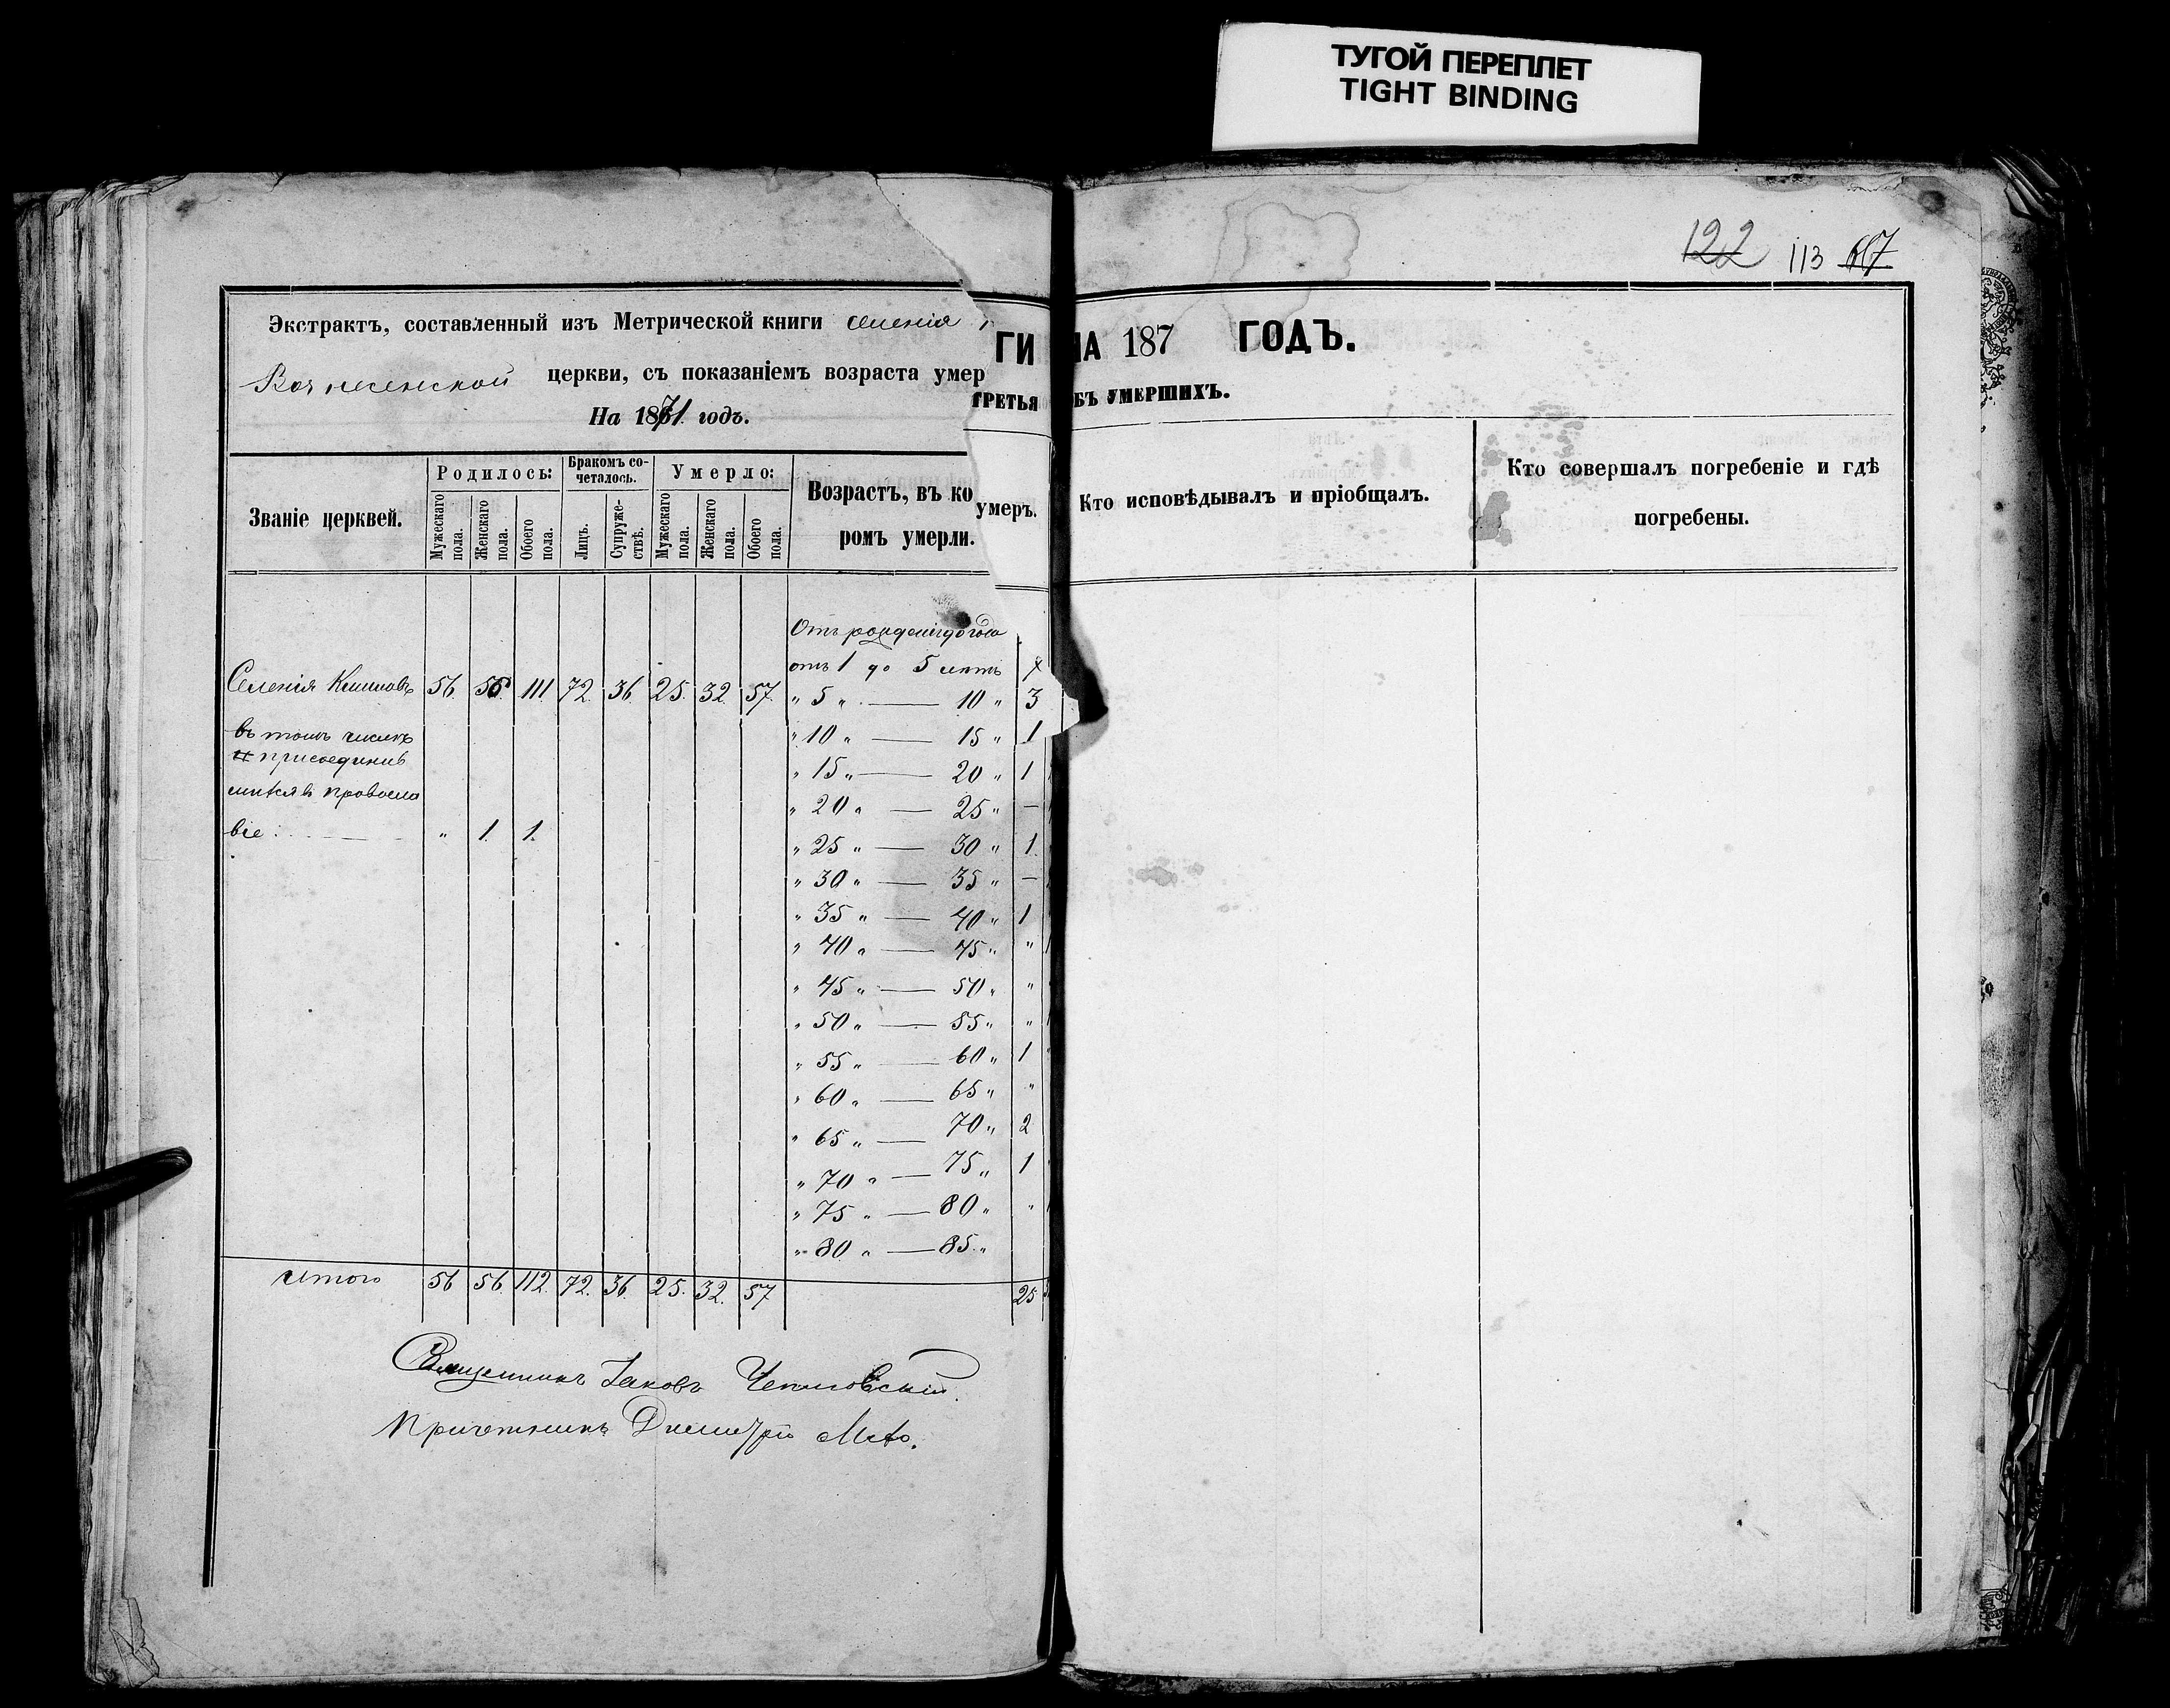 ТУГОЙ ПЕРЕПЛЕТ
TIGHT BINDING
Экстрактъ, составленный изъ Метрической книги селенія
церкви, съ показаніемъ возраста умер
На 1871 годъ.
Званіе церквей.
Родилось:
Бракомъ со-
четалось.
Умерло:
Возрастъ, въ ко
ромъ умерли.
Мужескаго пола.
Женскаго пола.
Обоего пола.
Лицъ.
Супруже-
ствъ.
Мужескаго пола.
Женскаго пола.
Обоего пола.
Отъ рожденія до года
отъ 1 до 5 лѣтъ 7
Селенія 56. 55 111 72. 36. 25. 32. 57.
" 5 " — 10 " 3
въ томъ числѣ
" 10 " — 15 " 1
присоединив
" 15 " — 20 " 1
шихся въ православ
" 20 " — 25 " —
віе: " 1. 1.
" 25 " — 30 " 1.
" 30 " — 35 " —
" 35 " — 40 " 1
" 40 " — 45 " "
" 45 " — 50 " "
" 50 " — 55 " "
" 55 " — 60 " 1
" 60 " — 65 " "
" 65 " — 70 " 2
" 70 " — 75 " 1
" 75 " — 80 " "
" 80 " — 85 "
Итого 56 56. 112. 72. 36. 25. 32. 57 25
Священникъ Іаковъ
Причетникъ Димитрій
122 113
ГИ НА 187 ГОДЪ.
ТРЕТЬЯ БЪ УМЕРШИХЪ.
умеръ.
Кто исповѣдывалъ и пріобщалъ.
Кто совершалъ погребеніе и гдѣ
погребены.